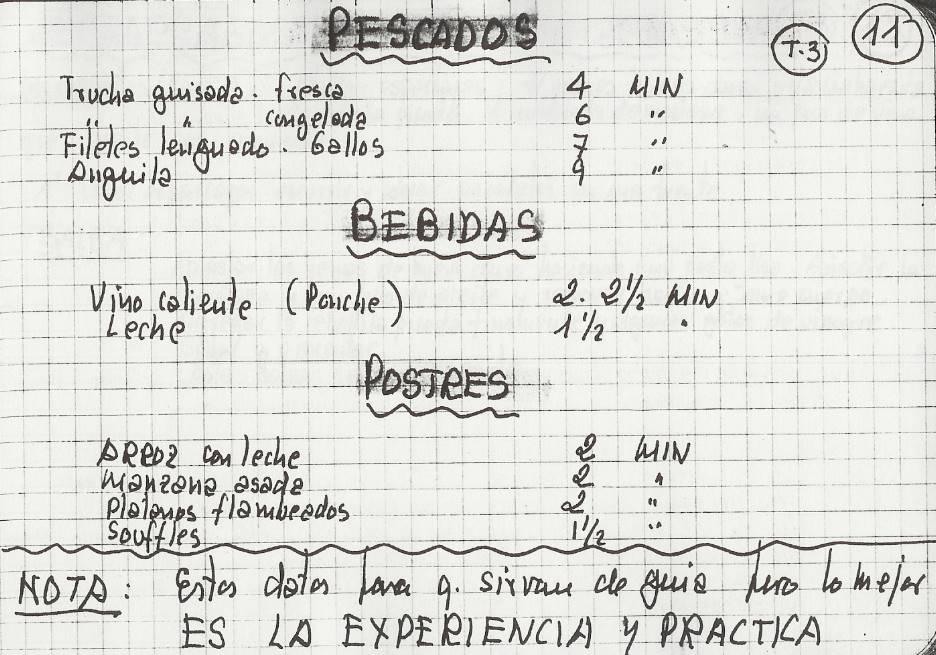 PESCADOS
T.3 11
Trucha guisada. fresca 4 MIN
" " congelada 6 "
Filetes lenguado. Gallos 7 "
Anguila 9 "
BEBIDAS
Vino caliente (Ponche) 2. 2 1/2 MIN
Leche 1 1/2 "
POSTRES
ARROZ con leche 2 MIN
Manzana asada 2 "
Platanos flambeados 2 "
Souffles 1 1/2 "
NOTA: Estos datos para q. sirvan de guia pero lo mejor
ES LA EXPERIENCIA Y PRACTICA